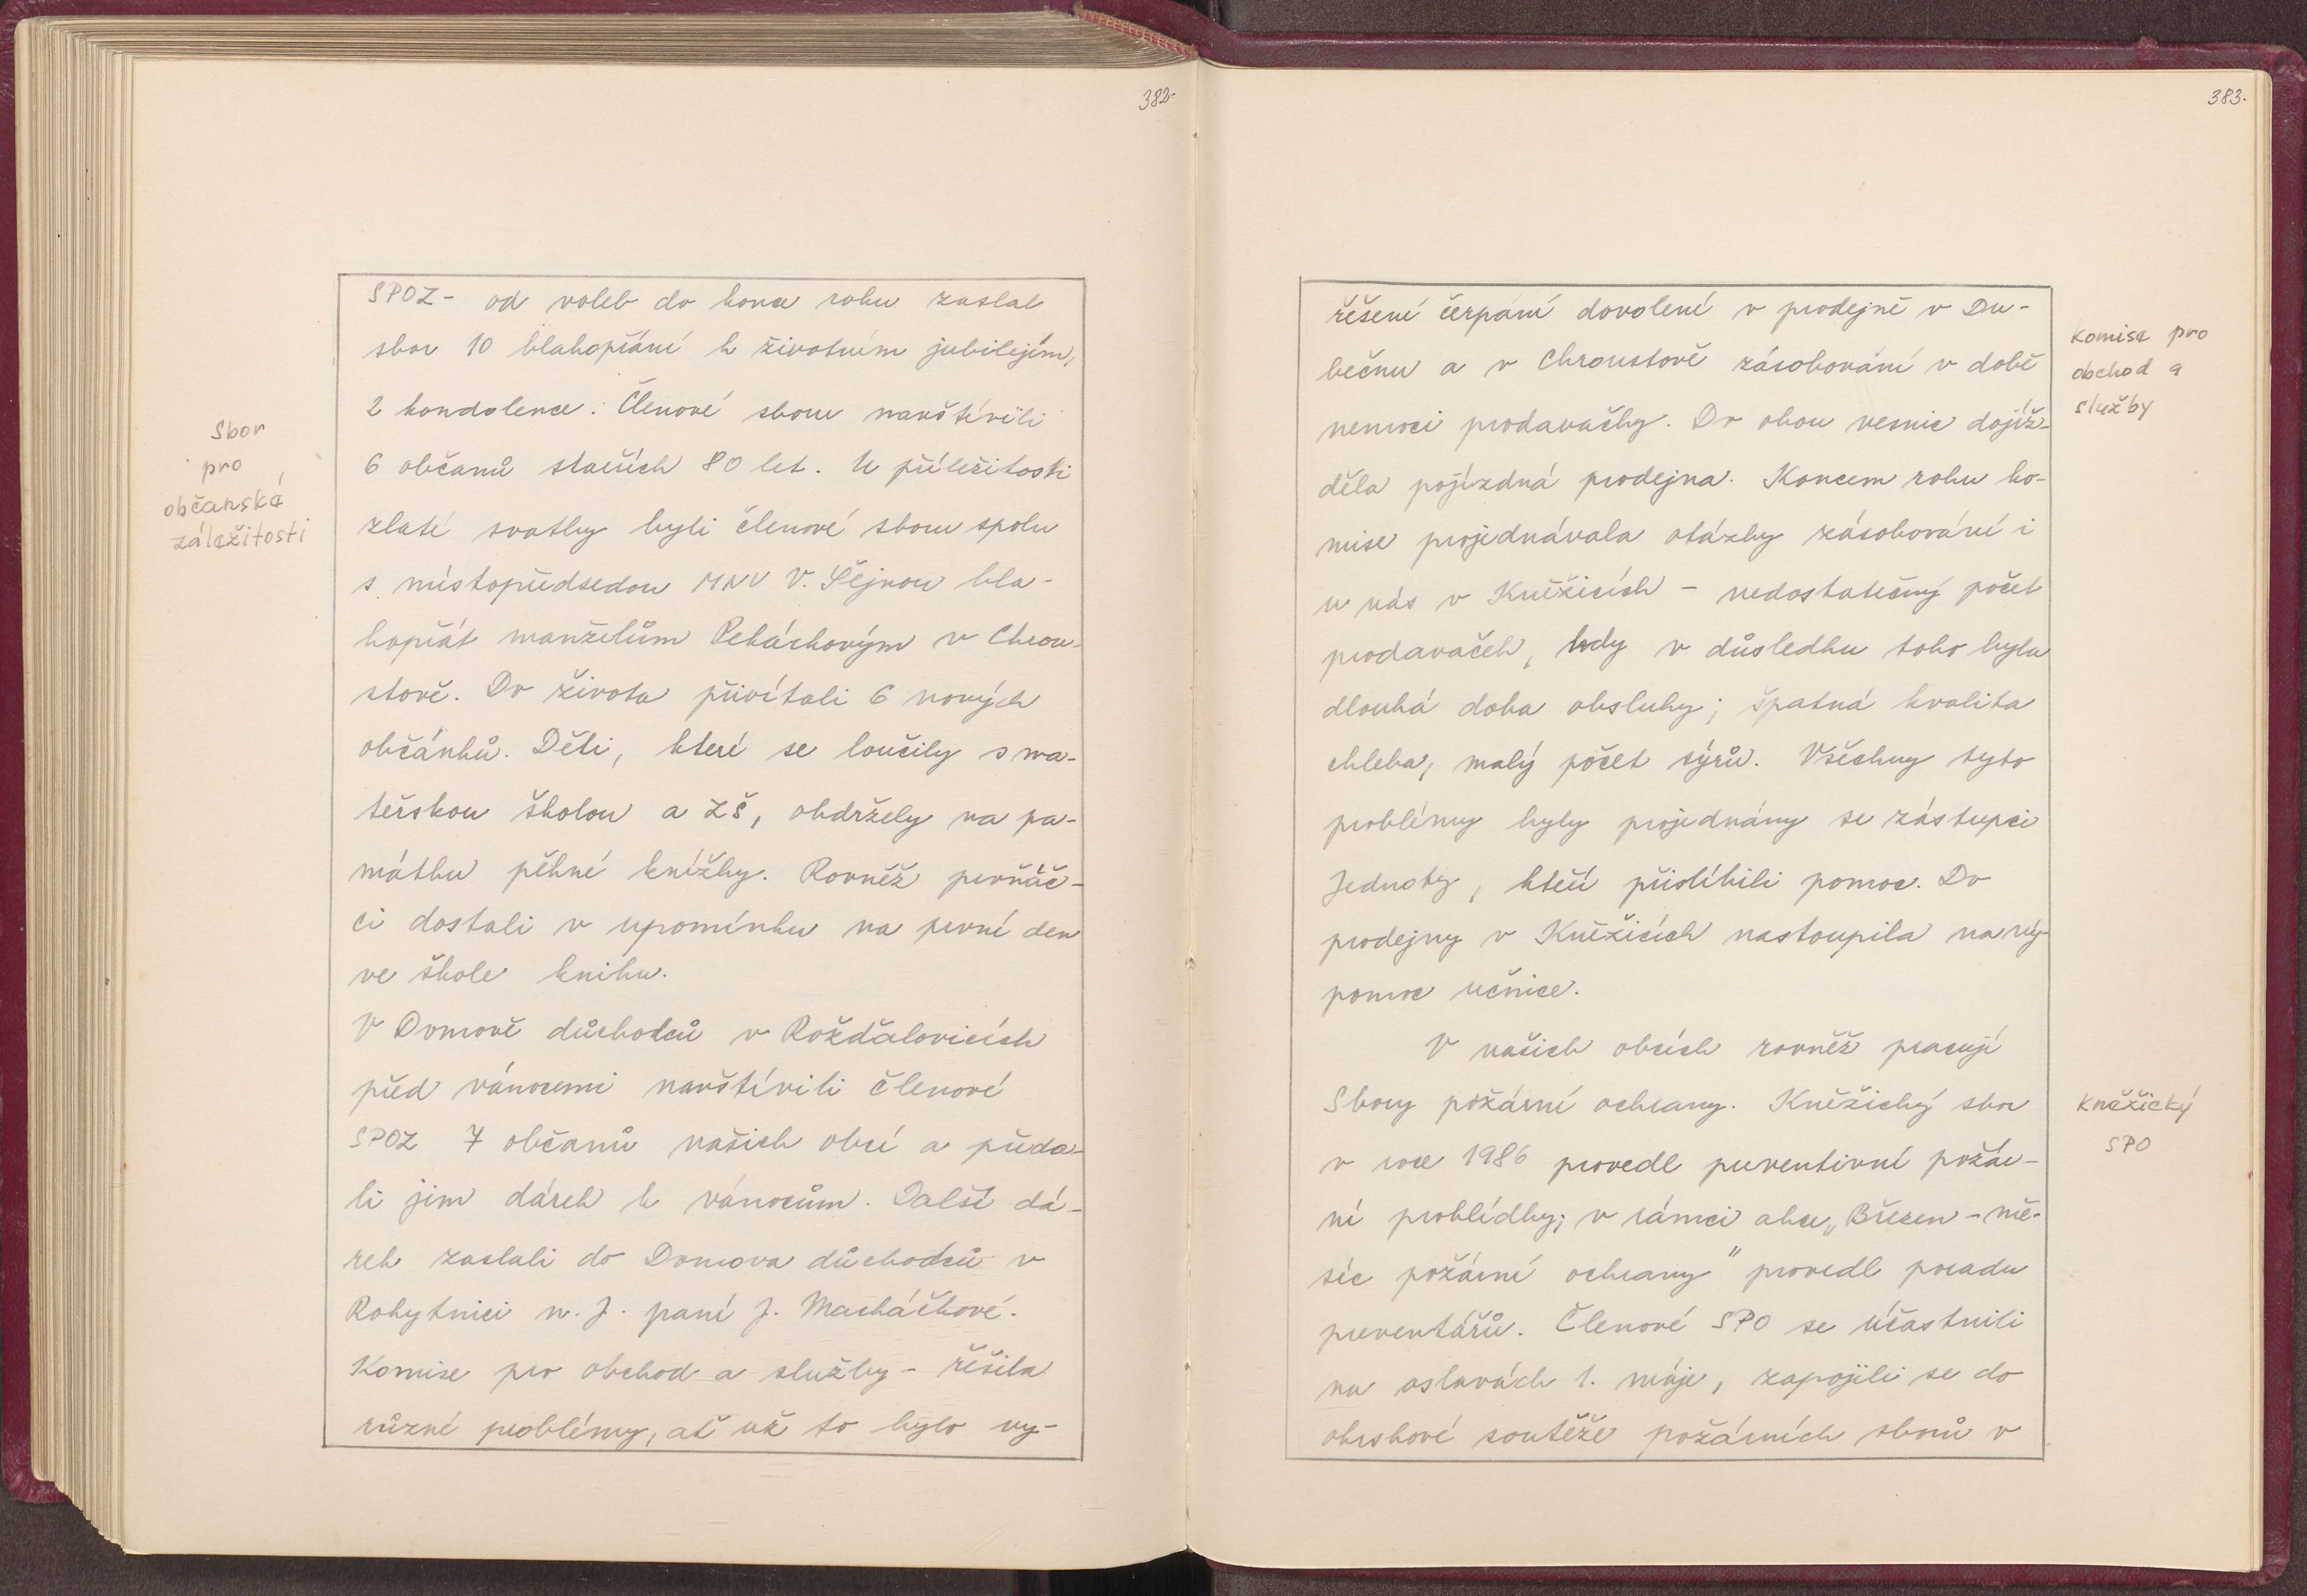 382.
Sbor
pro
občanské
záležitosti
SPOZ - od voleb do konce roku zaslal
sbor 10 blahopřání k životním jubilejím,
2 kondolence. Členové sboru navštívili
6 občanů starších 80 let. U příležitosti
zlaté svatby byli členové sboru spolu
s místopředsedou MNV V. Šejnou bla-
hopřát manželům Pekárkovým v Chrou-
stově. Do života přivítali 6 nových
občánků. Děti, které se loučily s ma-
teřskou školou a ZŠ, obdržely na pa-
mátku pěkné knížky. Rovněž prvňáč-
ci dostali v upomínku na první den
ve škole knihu.
V Domově důchodců v Rožďalovicích
před vánocemi navštívili členové
SPOZ 7 občanů našich obcí a předa-
li jim dárek k vánocům. Další dá-
rek zaslali do Domova důchodců v
Rokytnici n. J. paní J. Macháčkové.
Komise pro obchod a služby - řešila
různé problémy, ať už to bylo vy-
383.
řešení čerpání dovolené v prodejně v Du-
bečnu a v Chroustově zásobování v době
nemoci prodavačky. Do obou vesnic dojíž-
děla pojízdná prodejna. Koncem roku ko-
mise projednávala otázky zásobování i
u nás v Kněžicích - nedostatečný počet
prodavaček, kdy v důsledku toho byla
dlouhá doba obsluhy; špatná kvalita
chleba, malý počet sýrů. Všechny tyto
problémy byly projednány se zástupci
Jednoty, kteří přislíbili pomoc. Do
prodejny v Kněžicích nastoupila na vý-
pomoc učnice.
V našich obcích rovněž pracují
Sbory požární ochrany. Kněžický sbor
v roce 1986 provedl preventivní požár-
ní prohlídky; v rámci akce „Březen - mě-
síc požární ochrany" provedl poradu
preventářů. Členové SPO se účastnili
na oslavách 1. máje, zapojili se do
okrskové soutěže požárních sborů v
Komise pro
obchod a
služby
Kněžický
SPO